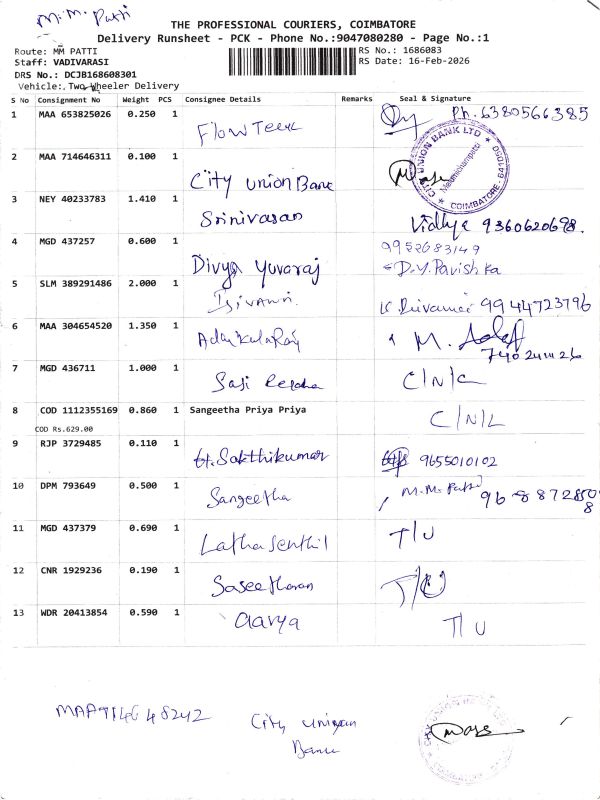 M.M. Patti
THE PROFESSIONAL COURIERS, COIMBATORE
Delivery Runsheet - PCK - Phone No.:9047080280 - Page No.:1
Route: MM PATTI
Staff: VADIVARASI
DRS No.: DCJB168608301
Vehicle:. Two Wheeler Delivery
RS No.: 1686083
RS Date: 16-Feb-2026
S No Consignment No Weight PCS Consignee Details Remarks Seal & Signature
1 MAA 653825026 0.250 1 Ph. 6380566385
2 MAA 714646311 0.100 1 City Union Bank
CITY UNION BANK LTD
COIMBATORE
3 NEY 40233783 1.410 1 Srinivasan Vidhya 9360620698.
4 MGD 437257 0.600 1 Divya Yuvaraj 9952683149
D.Y. Pavishka
5 SLM 389291486 2.000 1 9944723796
6 MAA 304654520 1.350 1 M.
7 MGD 436711 1.000 1 Saji C/N/C
8 COD 1112355169 0.860 1 Sangeetha Priya Priya C/N/L
COD Rs.629.00
9 RJP 3729485 0.110 1 Sakthikumar 9655010102
10 DPM 793649 0.500 1 Sangeetha M.M. Patti
11 MGD 437379 0.690 1 Latha Senthil T/U
12 CNR 1929236 0.190 1 T/U
13 WDR 20413854 0.590 1 aarya T/U
City Union
Bank